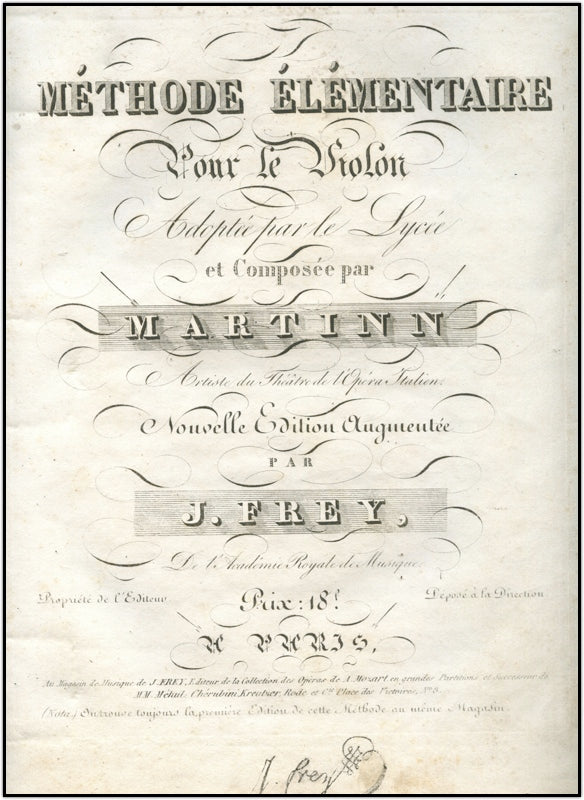 MÉTHODE ÉLÉMENTAIRE
Pour le Violon
Adoptée par le Lycée
et Composée par
MARTINN
Artiste du Théâtre de l'Opéra Italien.
Nouvelle Edition Augmentée
PAR
J. FREY,
De l'Académie Royale de Musique.
Propriété de l'Editeur
Prix: 18f.
Déposé à la Direction
A PARIS,
Au Magasin de Musique de J. FREY, Editeur de la Collection des Opéras de A. Mozart en grandes Partitions et Successeur de
MM. Méhul, Chérubini, Kreutzer, Rode et Cie. Place des Victoires, No. 8.
(Nota) On trouve toujours la première Edition de cette Méthode au même Magasin.
J. frey